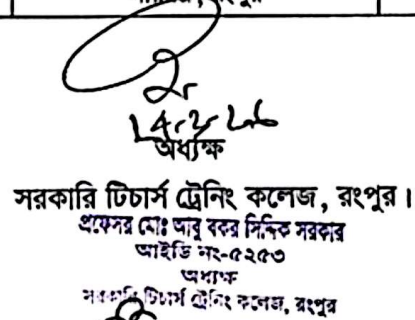 অধ্যক্ষ
সরকারি টিচার্স ট্রেনিং কলেজ, রংপুর।
প্রফেসর মোঃ আবু বকর সিদ্দিক সরকার
আইডি নং-৫২৫৩
অধ্যক্ষ
সরকারি টিচার্স ট্রেনিং কলেজ, রংপুর